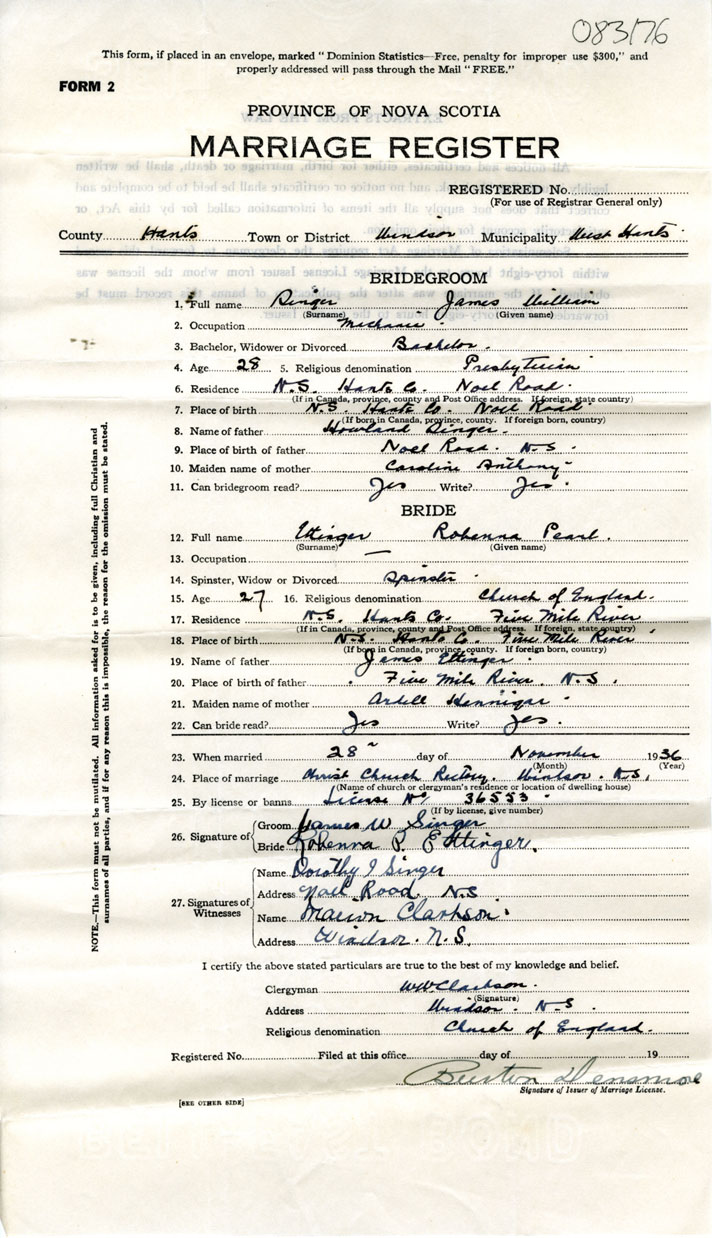 083176
This form, if placed in an envelope, marked "Dominion Statistics—Free, penalty for improper use $300," and
properly addressed will pass through the Mail "FREE."
FORM 2
PROVINCE OF NOVA SCOTIA
MARRIAGE REGISTER
REGISTERED No.
(For use of Registrar General only)
County Hants Town or District Windsor Municipality West Hants
BRIDEGROOM
1. Full name Singer James William
(Surname) (Given name)
2. Occupation Mechanic
3. Bachelor, Widower or Divorced Bachelor
4. Age 28 5. Religious denomination Presbyterian
6. Residence N.S. Hants Co. Noel Road
(If in Canada, province, county and Post Office address. If foreign, state country)
7. Place of birth N.S. Hants Co. Noel Road
(If born in Canada, province, county. If foreign born, country)
8. Name of father Howland Singer
9. Place of birth of father Noel Road. N.S.
10. Maiden name of mother Caroline Anthony
11. Can bridegroom read? Yes Write? Yes
BRIDE
12. Full name Ettinger Robenna Pearl.
(Surname) (Given name)
13. Occupation —
14. Spinster, Widow or Divorced Spinster
15. Age 27 16. Religious denomination Church of England.
17. Residence N.S. Hants Co. Five Mile River
(If in Canada, province, county and Post Office address. If foreign, state country)
18. Place of birth N.S. Hants Co. Five Mile River
(If born in Canada, province, county. If foreign born, country)
19. Name of father James Ettinger
20. Place of birth of father Five Mile River. N.S.
21. Maiden name of mother Ardell Hennigar
22. Can bride read? Yes Write? Yes.
23. When married 28 day of November 1936
(Month) (Year)
24. Place of marriage Christ Church Rectory. Windsor. N.S.
(Name of church or clergyman's residence or location of dwelling house)
25. By license or banns License No 36553
(If by license, give number)
26. Signature of
Groom James W Singer
Bride Robenna P. Ettinger.
27. Signatures of Witnesses
Name Dorothy I Singer
Address Noel Road N.S
Name Marion Clarkson
Address Windsor. N.S.
I certify the above stated particulars are true to the best of my knowledge and belief.
Clergyman WWClarkson.
(Signature)
Address Windsor. N-S
Religious denomination Church of England.
Registered No. Filed at this office day of 19
Burton Densmore
Signature of Issuer of Marriage License.
[SEE OTHER SIDE]
NOTE.—This form must not be mutilated. All information asked for is to be given, including full Christian and
surnames of all parties, and if for any reason this is impossible, the reason for the omission must be stated.